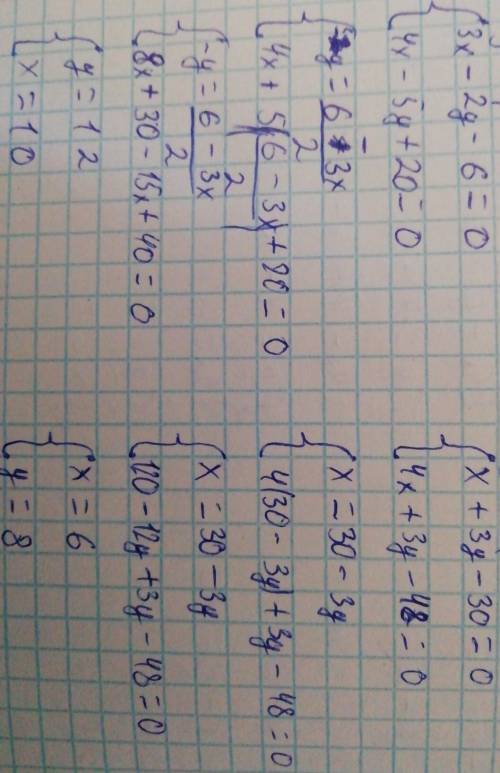 {3x - 2y - 6 = 0
{4x - 5y + 20 = 0
{-y = (6 - 3x)/2
{4x + 5((6 - 3x)/2) + 20 = 0
{-y = (6 - 3x)/2
{8x + 30 - 15x + 40 = 0
{y = 12
{x = 10
{x + 3y - 30 = 0
{4x + 3y - 48 = 0
{x = 30 - 3y
{4(30 - 3y) + 3y - 48 = 0
{x = 30 - 3y
{120 - 12y + 3y - 48 = 0
{x = 6
{y = 8